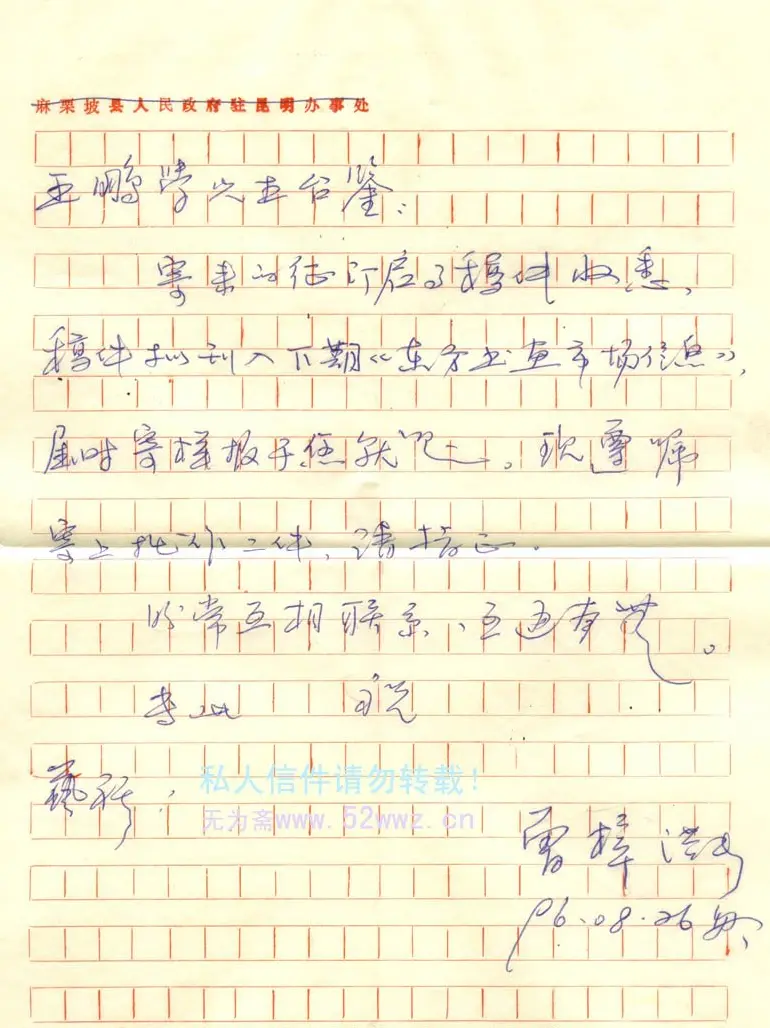 麻栗坡县人民政府驻昆明办事处
王鹏学兄台鉴：
寄来的征订启了稿件收悉、
稿件拟刊入下期《东方书画市场信息》，
届时寄样报于您就是。现遵嘱
寄上拙作二件，请指正。
盼常互相联系、互通有无。
专此 祝
藝祺！
私人信件请勿转载！
无为斋www.52wwz.cn
雷梓
96.08.26